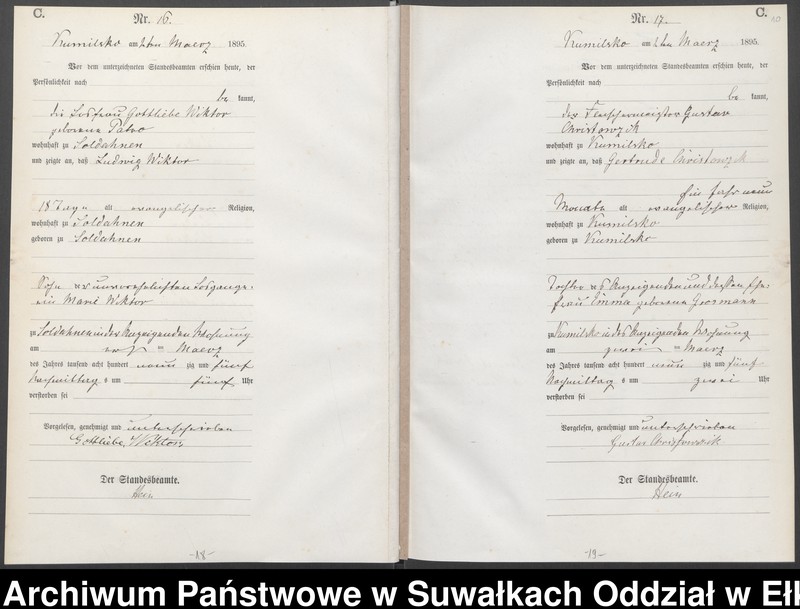 C.
Nr. 16.
Kumilsko am 2ten Maerz 1895.
Vor dem unterzeichneten Standesbeamten erschien heute, der
Persönlichkeit nach
be kannt,
die Losfrau Gottliebe Wiktor
geborene
wohnhaft zu Soldahnen
und zeigte an, daß Ludwig Wiktor
18 Tage alt evangelischer Religion,
wohnhaft zu Soldahnen
geboren zu Soldahnen
Sohn der unverehelichten Losgänge-
rin Marie Wiktor
zu Soldahnen in der Anzeigenden Wohnung
am ersten Maerz
des Jahres tausend acht hundert neun zig und fünf
Nachmittags um fünf Uhr
verstorben sei
Vorgelesen, genehmigt und unterschrieben
Gottliebe Wiktor
Der Standesbeamte.
Hein
-18-
C.
10
Nr. 17.
Kumilsko am 2ten Maerz 1895.
Vor dem unterzeichneten Standesbeamten erschien heute, der
Persönlichkeit nach
be kannt,
der Fleischermeister Gustav
Christowzik
wohnhaft zu Kumilsko
und zeigte an, daß Gertrude Christowzik
Ein Jahr neun
Monate alt evangelischer Religion,
wohnhaft zu Kumilsko
geboren zu Kumilsko
Tochter des Anzeigenden und dessen Ehe-
frau Emma geborene
zu Kumilsko in des Anzeigenden Wohnung
am zwei ten Maerz
des Jahres tausend acht hundert neun zig und fünf
Nachmittags um zwei Uhr
verstorben sei
Vorgelesen, genehmigt und unterschrieben
Gustav Christowzik
Der Standesbeamte.
Hein
-19-
Archiwum Państwowe w Suwałkach Oddział w Eł